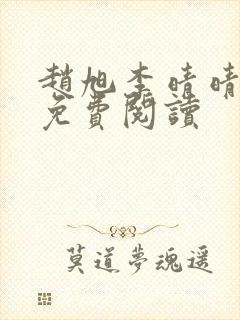 趙旭李晴晴
免費閱讀
莫道夢魂遥